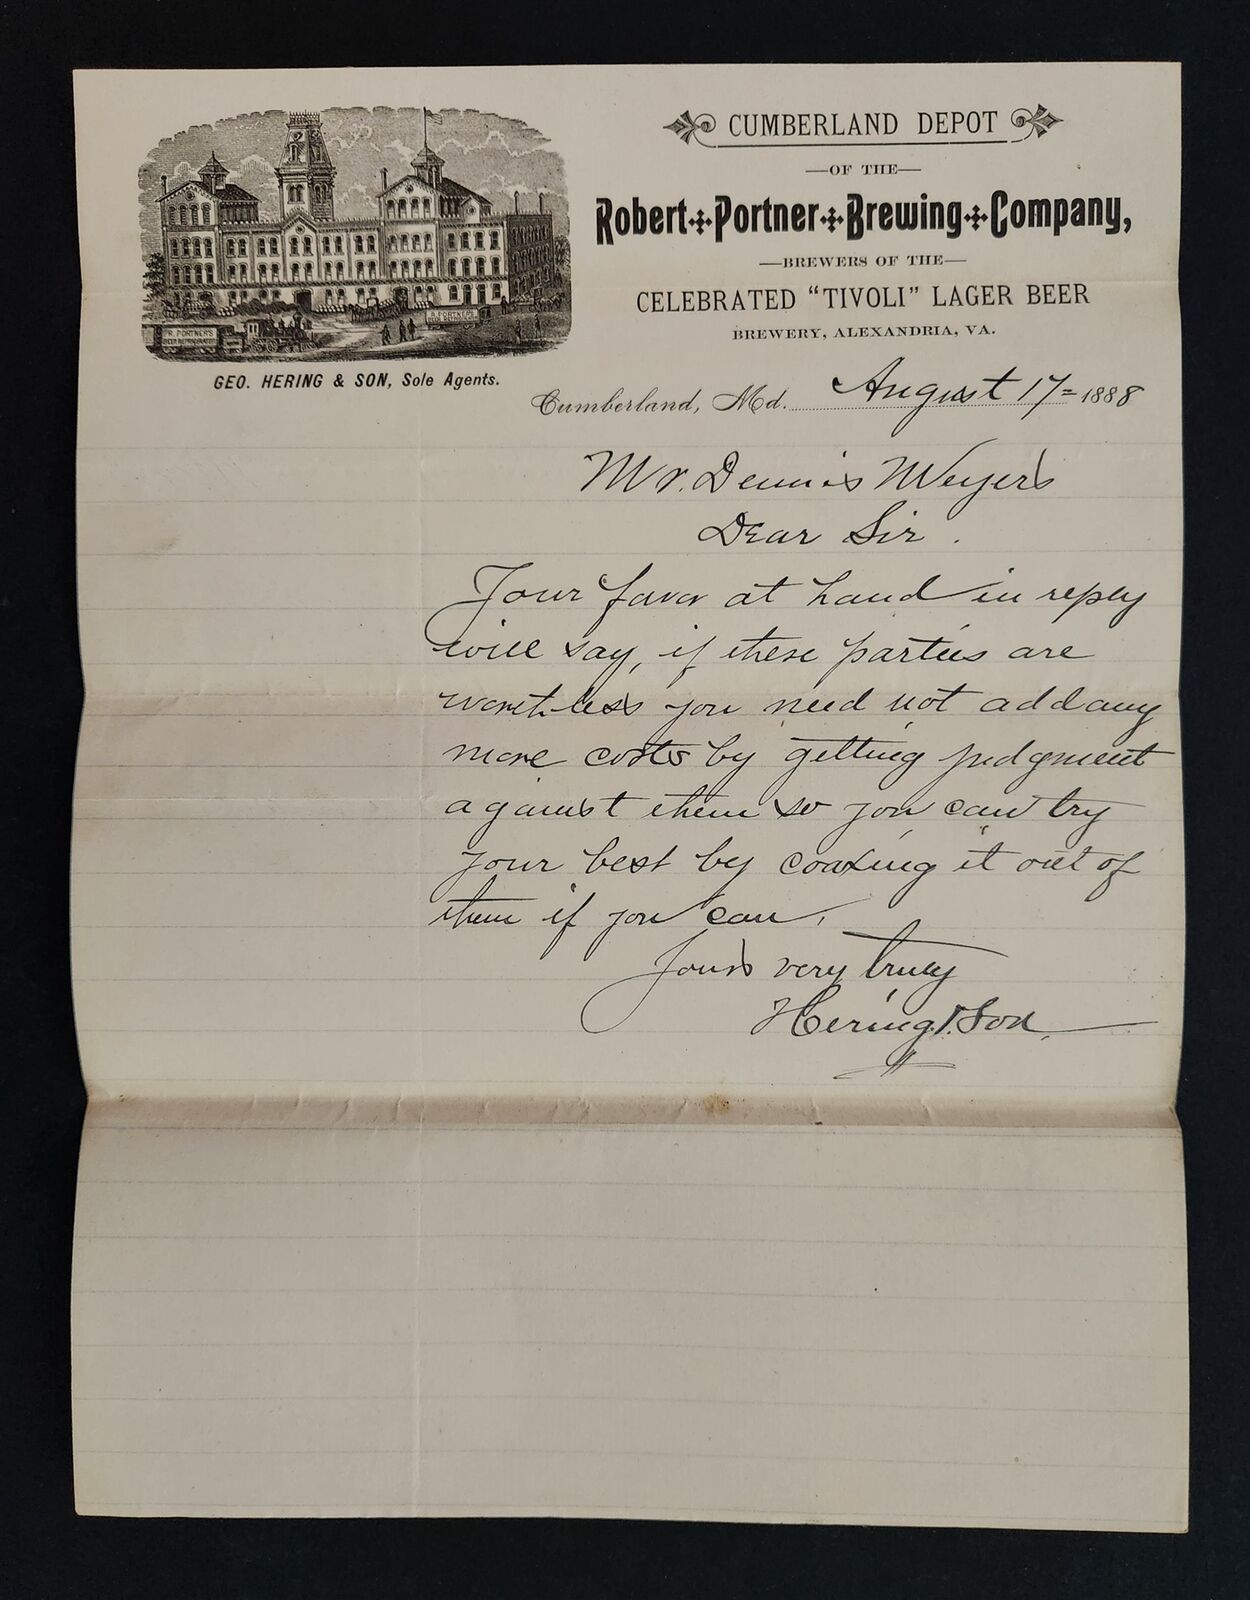 CUMBERLAND DEPOT
OF THE
Robert Portner Brewing Company,
BREWERS OF THE
CELEBRATED "TIVOLI" LAGER BEER
BREWERY, ALEXANDRIA, VA.
R. PORTNER'S
BEER REFRIGERATOR
R. PORTNER
GEO. HERING & SON, Sole Agents.
Cumberland, Md. August 17= 1888
Mr. Dennis Weyers
Dear Sir.
Your favor at hand in reply
will say, if these parties are
worthless you need not add any
more costs by getting judgment
against them so you can try
your best by coaxing it out of
them if you can.
Yours very truly
Hering & Son